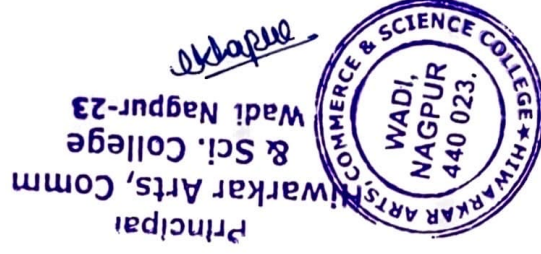 Principal
Hiwarkar Arts, Comm
& Sci. College
Wadi Nagpur-23
HIWARKAR ARTS, COMMERCE & SCIENCE COLLEGE ★
WADI,
NAGPUR
440 023.